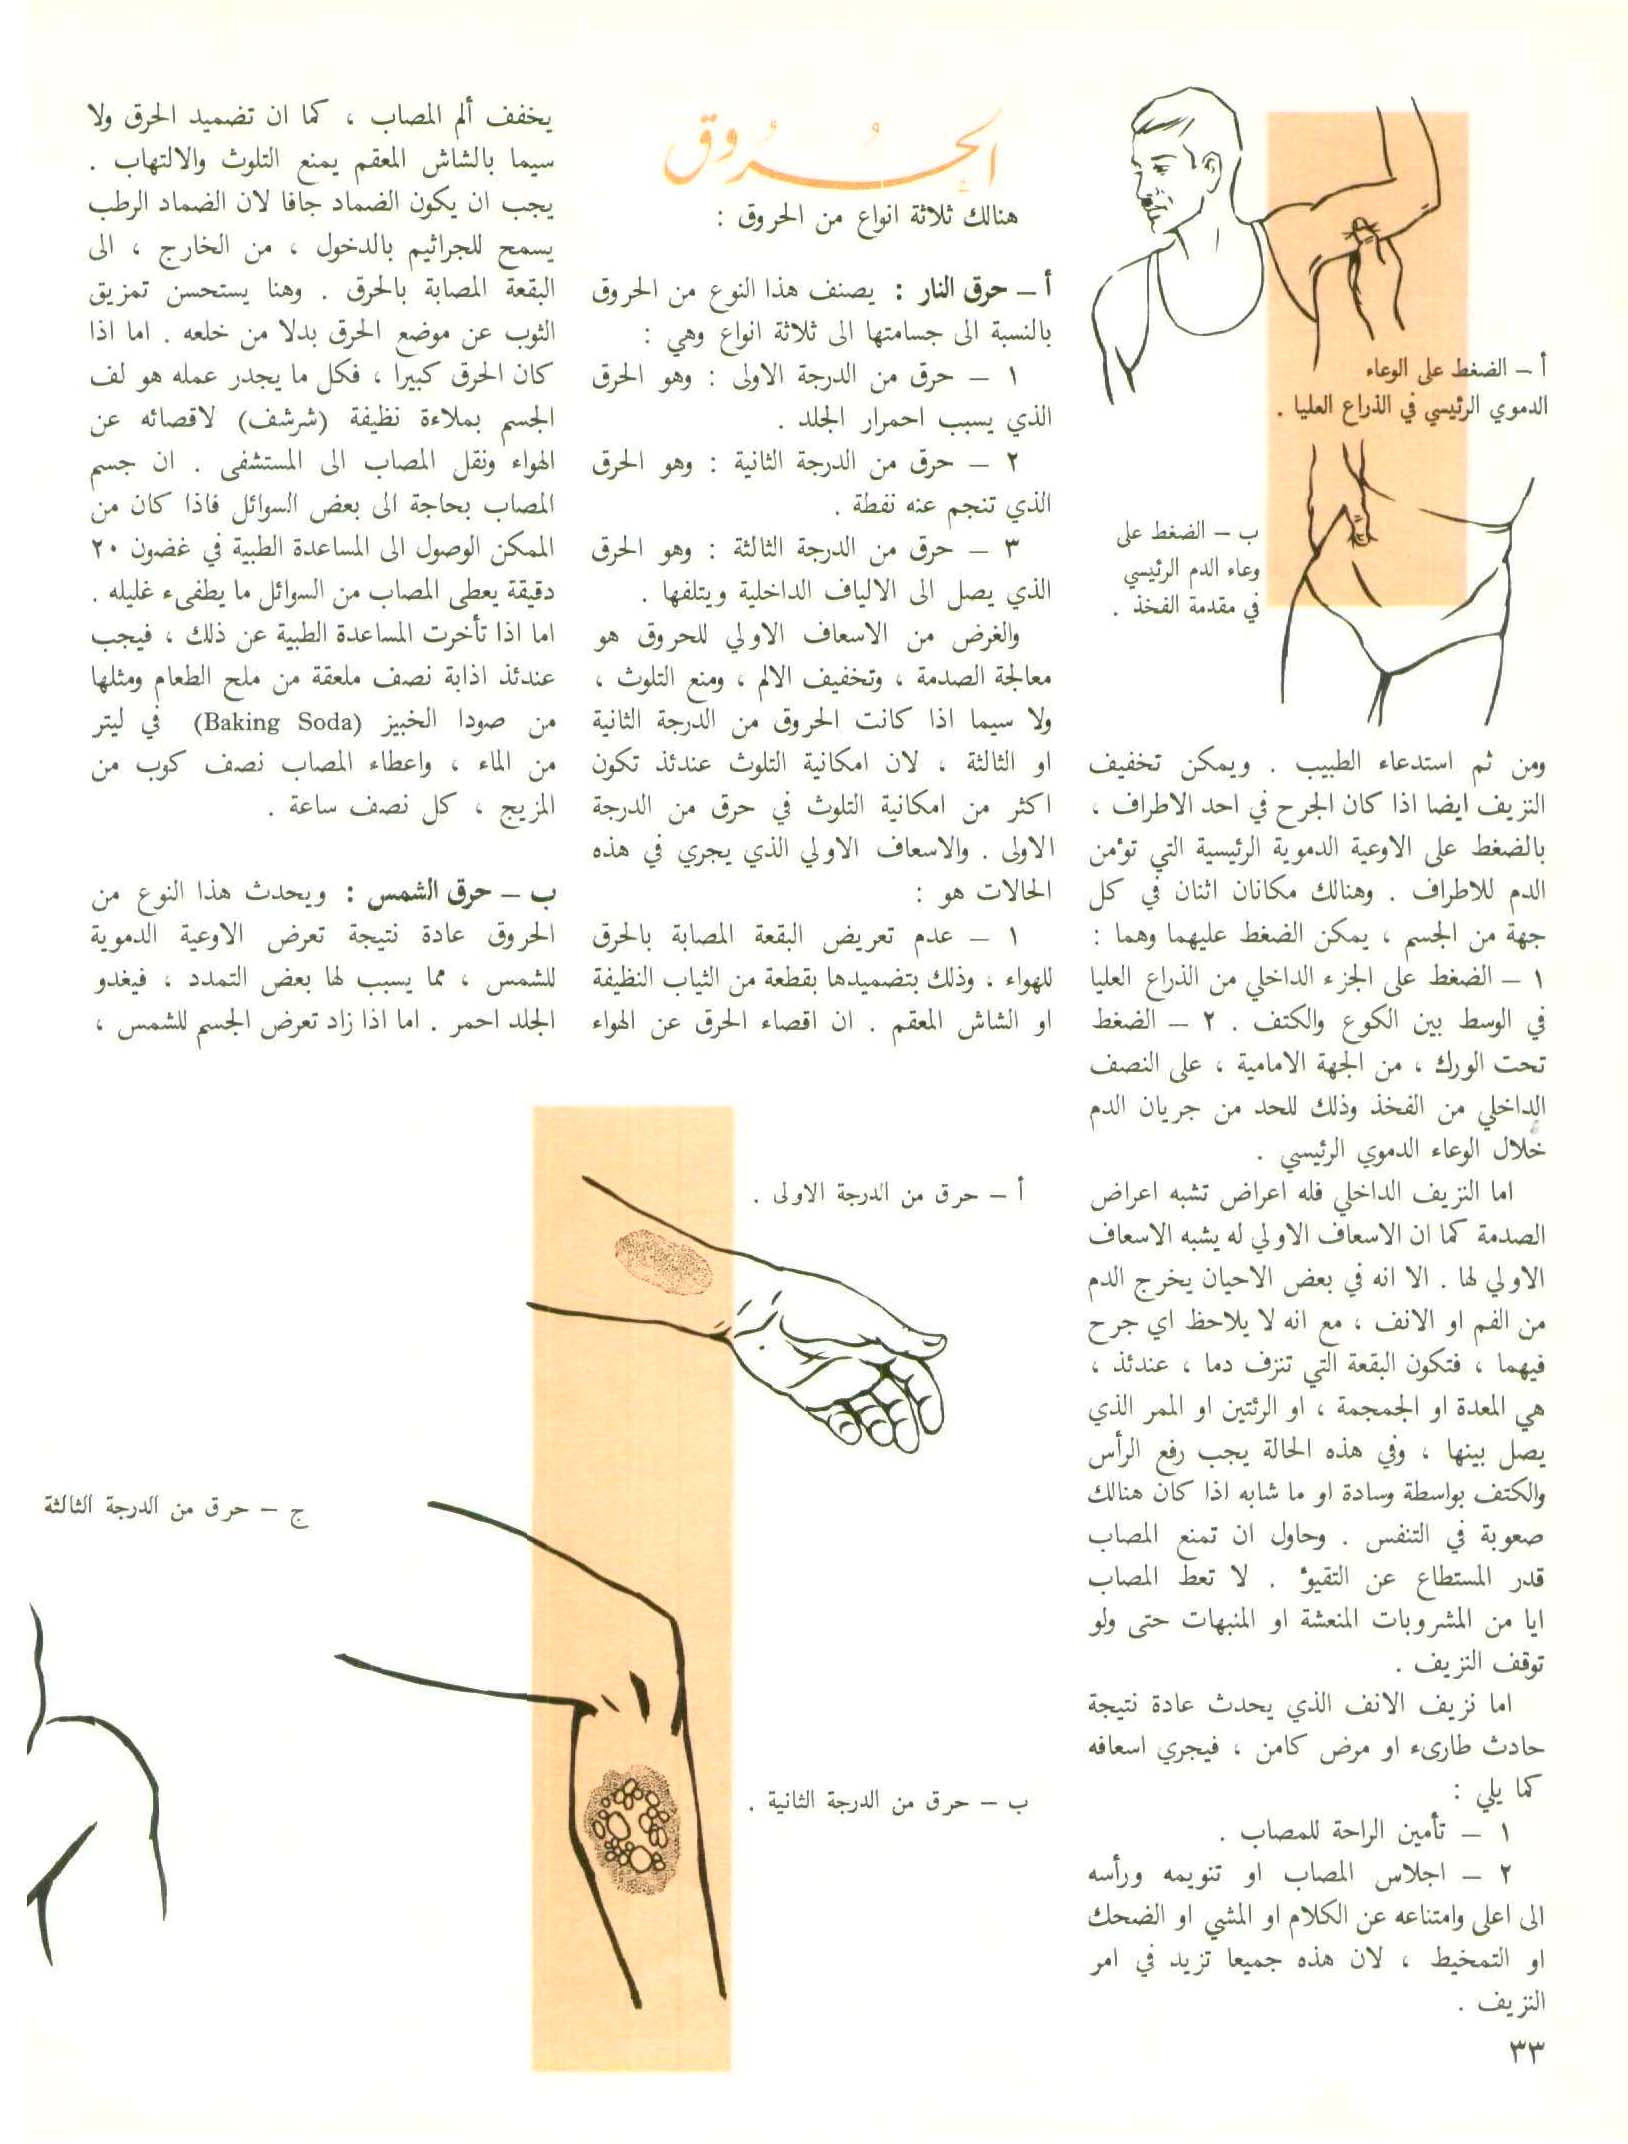 أ – الضغط على الوعاء
الدموي الرئيسي في الذراع العليا .
ب – الضغط على
وعاء الدم الرئيسي
في مقدمة الفخذ .
ومن ثم استدعاء الطبيب . ويمكن تخفيف
النزيف ايضا اذا كان الجرح في احد الاطراف ،
بالضغط على الاوعية الدموية الرئيسية التي تؤمن
الدم للاطراف . وهنالك مكانان اثنان في كل
جهة من الجسم ، يمكن الضغط عليهما وهما :
١ – الضغط على الجزء الداخلي من الذراع العليا
في الوسط بين الكوع والكتف . ٢ – الضغط
تحت الورك ، من الجهة الامامية ، على النصف
الداخلي من الفخذ وذلك للحد من جريان الدم
خلال الوعاء الدموي الرئيسي .
اما النزيف الداخلي فله اعراض تشبه اعراض
الصدمة كما ان الاسعاف الاولي له يشبه الاسعاف
الاولي لها . الا انه في بعض الاحيان يخرج الدم
من الفم او الانف ، مع انه لا يلاحظ اي جرح
فيهما ، فتكون البقعة التي تنزف دما ، عندئذ ،
هي المعدة او الجمجمة ، او الرئتين او الممر الذي
يصل بينها ، وفي هذه الحالة يجب رفع الرأس
والكتف بواسطة وسادة او ما شابه اذا كان هنالك
صعوبة في التنفس . وحاول ان تمنع المصاب
قدر المستطاع عن التقيؤ . لا تعط المصاب
ايا من المشروبات المنعشة او المنبهات حتى ولو
توقف النزيف .
اما نزيف الانف الذي يحدث عادة نتيجة
حادث طارىء او مرض كامن ، فيجري اسعافه
كما يلي :
١ – تأمين الراحة للمصاب .
٢ – اجلاس المصاب او تنويمه ورأسه
الى اعلى وامتناعه عن الكلام او المشي او الضحك
او التمخيط ، لان هذه جميعا تزيد في امر
النزيف .
٣٣
الحُرُوق
هنالك ثلاثة انواع من الحروق :
أ – حرق النار : يصنف هذا النوع من الحروق
بالنسبة الى جسامتها الى ثلاثة انواع وهي :
١ – حرق من الدرجة الاولى : وهو الحرق
الذي يسبب احمرار الجلد .
٢ – حرق من الدرجة الثانية : وهو الحرق
الذي تنجم عنه نفطة .
٣ – حرق من الدرجة الثالثة : وهو الحرق
الذي يصل الى الالياف الداخلية ويتلفها .
والغرض من الاسعاف الاولي للحروق هو
معالجة الصدمة ، وتخفيف الالم ، ومنع التلوث ،
ولا سيما اذا كانت الحروق من الدرجة الثانية
او الثالثة ، لان امكانية التلوث عندئذ تكون
اكثر من امكانية التلوث في حرق من الدرجة
الاولى . والاسعاف الاولي الذي يجري في هذه
الحالات هو :
١ – عدم تعريض البقعة المصابة بالحرق
للهواء ، وذلك بتضميدها بقطعة من الثياب النظيفة
او الشاش المعقم . ان اقصاء الحرق عن الهواء
يخفف ألم المصاب ، كما ان تضميد الحرق ولا
سيما بالشاش المعقم يمنع التلوث والالتهاب .
يجب ان يكون الضماد جافا لان الضماد الرطب
يسمح للجراثيم بالدخول ، من الخارج ، الى
البقعة المصابة بالحرق . وهنا يستحسن تمزيق
الثوب عن موضع الحرق بدلا من خلعه . اما اذا
كان الحرق كبيرا ، فكل ما يجدر عمله هو لف
الجسم بملاءة نظيفة (شرشف) لاقصائه عن
الهواء ونقل المصاب الى المستشفى . ان جسم
المصاب بحاجة الى بعض السوائل فاذا كان من
الممكن الوصول الى المساعدة الطبية في غضون ٢٠
دقيقة يعطى المصاب من السوائل ما يطفىء غليله .
اما اذا تأخرت المساعدة الطبية عن ذلك ، فيجب
عندئذ اذابة نصف ملعقة من ملح الطعام ومثلها
من صودا الخبيز (Baking Soda) في ليتر
من الماء ، واعطاء المصاب نصف كوب من
المزيج ، كل نصف ساعة .
ب – حرق الشمس : ويحدث هذا النوع من
الحروق عادة نتيجة تعرض الاوعية الدموية
للشمس ، مما يسبب لها بعض التمدد ، فيغدو
الجلد احمر . اما اذا زاد تعرض الجسم للشمس ،
أ – حرق من الدرجة الاولى .
ب – حرق من الدرجة الثانية .
ج – حرق من الدرجة الثالثة